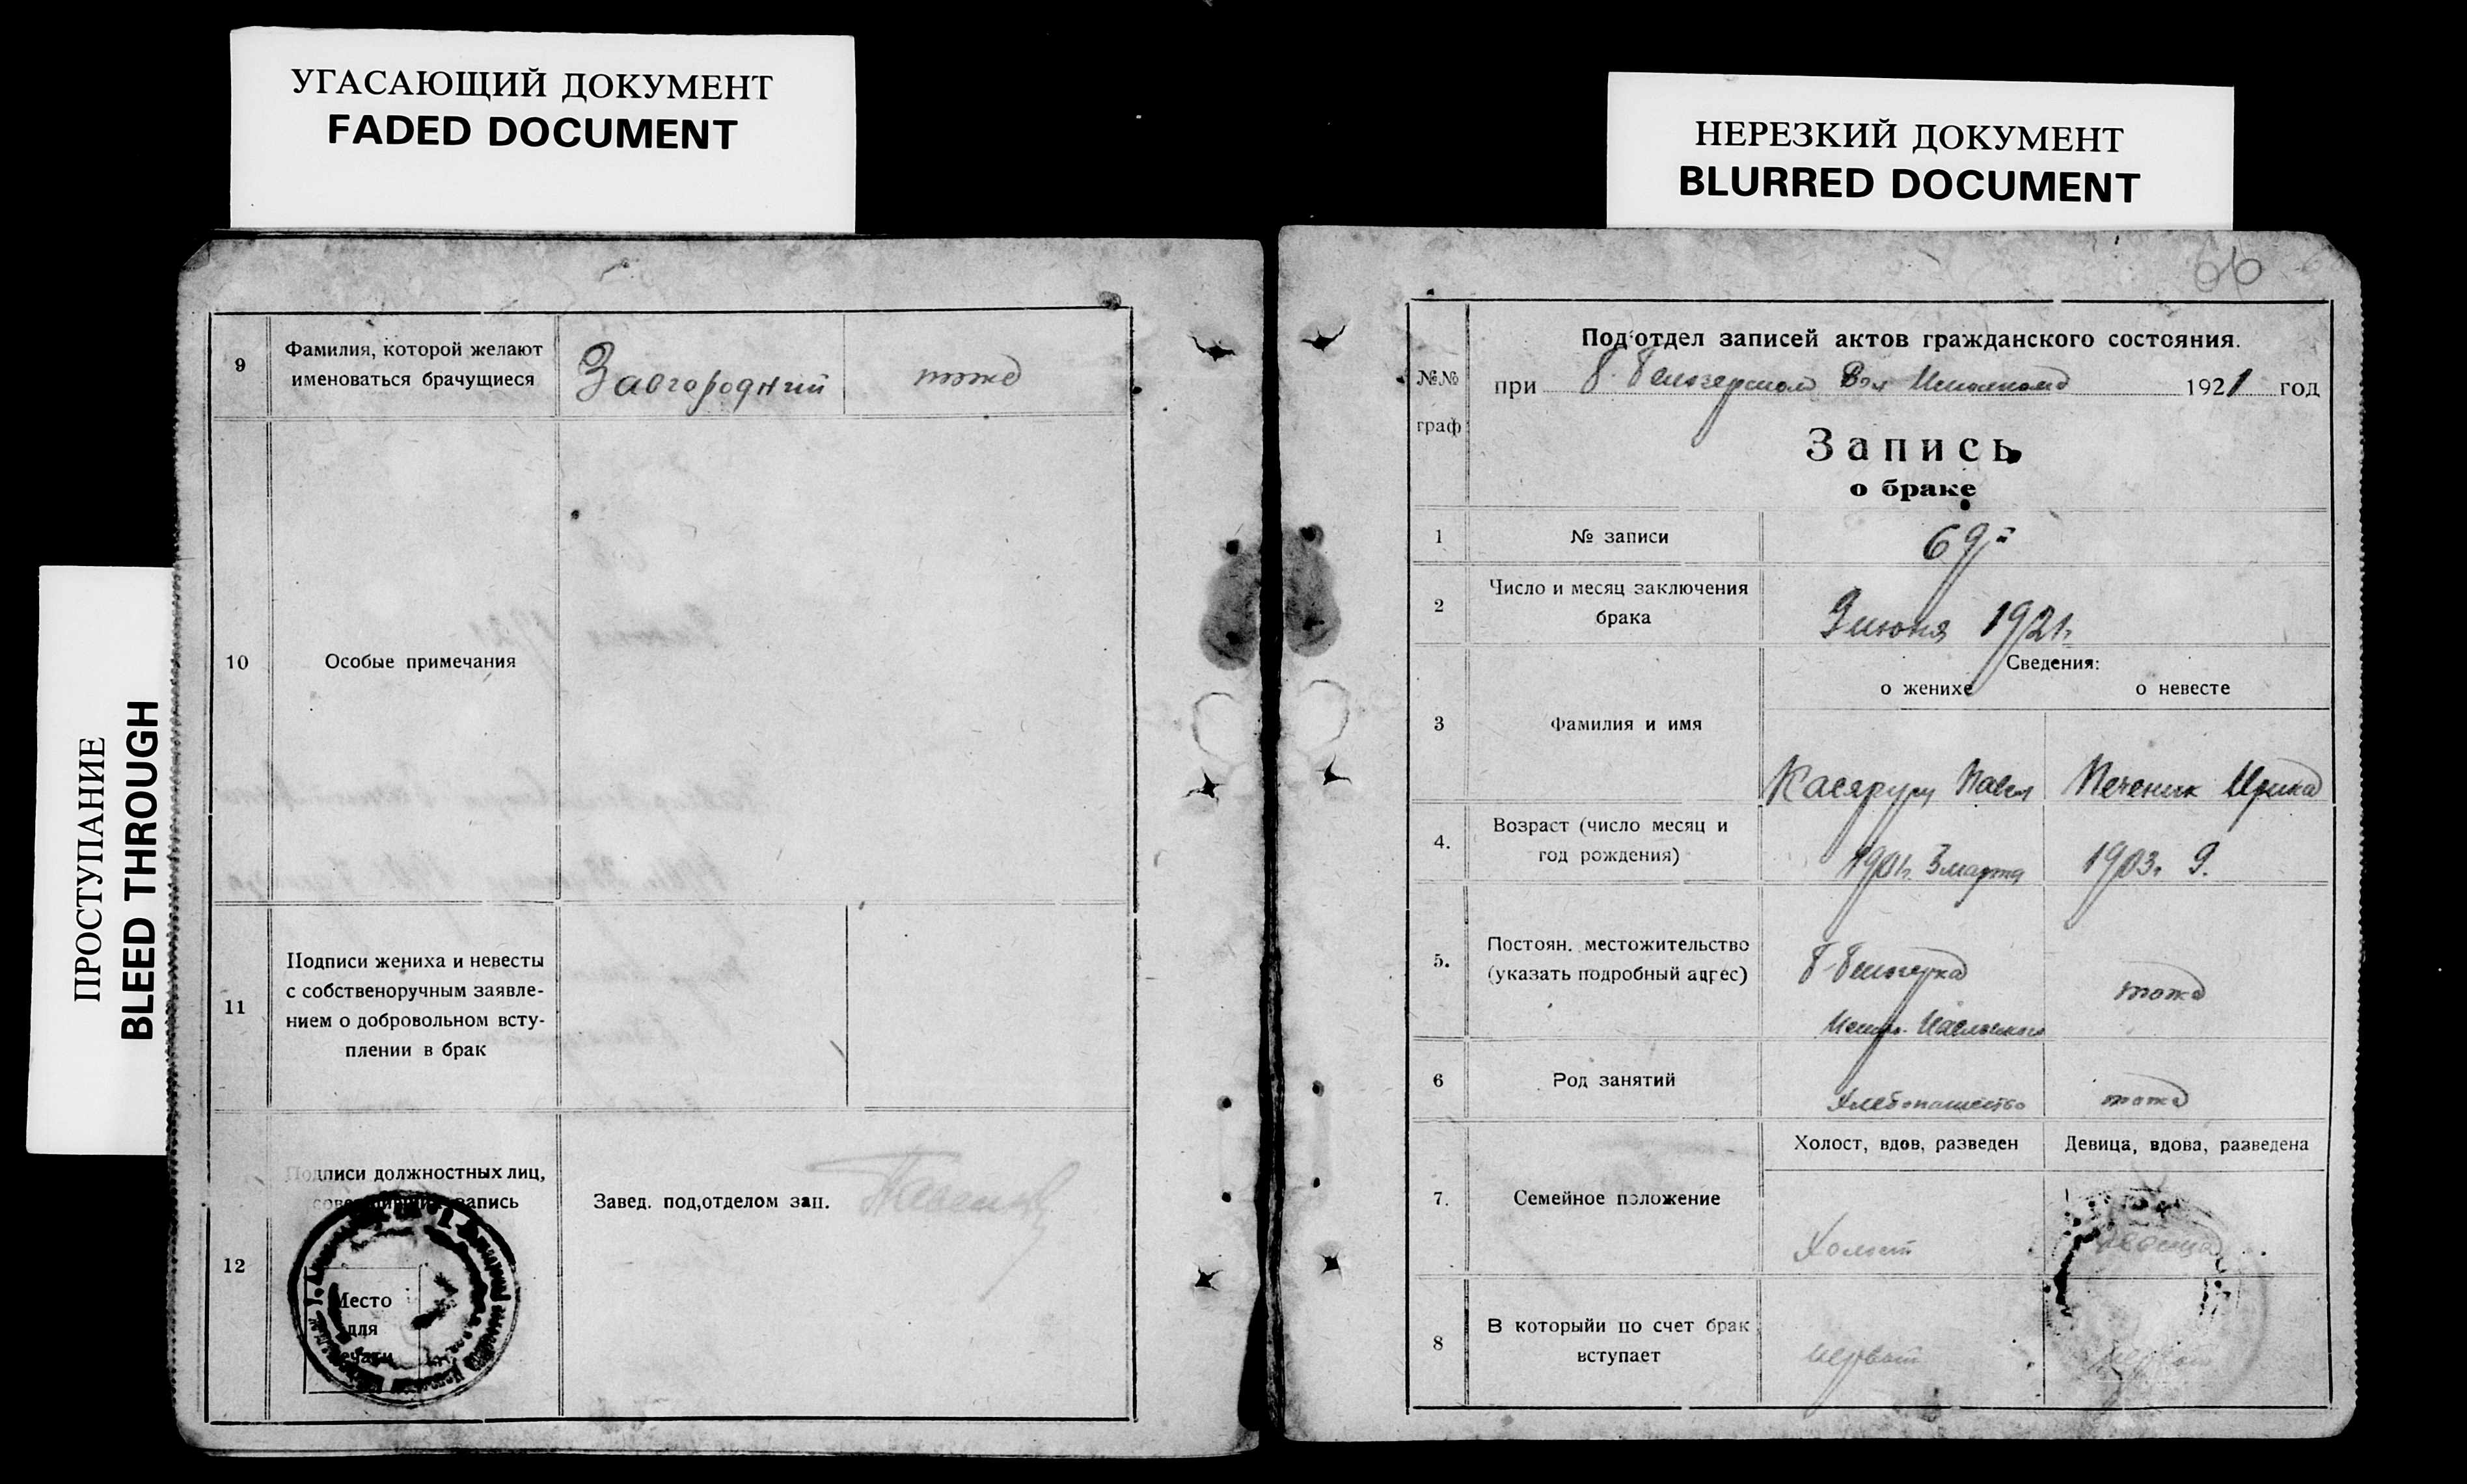 УГАСАЮЩИЙ ДОКУМЕНТ
FADED DOCUMENT
НЕРЕЗКИЙ ДОКУМЕНТ
BLURRED DOCUMENT
ПРОСТУПАНИЕ
BLEED THROUGH
9
Фамилия, которой желают
именоваться брачущиеся
Завгородний
тоже
10
Особые примечания
11
Подписи жениха и невесты
с собственоручным заявле-
нием о добровольном всту-
плении в брак
12
Подписи должностных лиц,
запись
Завед. под,отделом зап.
Место
для
печати
66
№№
граф
Под'отдел записей актов гражданского состояния.
при Вол 1921 год
Запись
о браке
1
№ записи
69
2
Число и месяц заключения
брака
9 июня 1921 г.
Сведения:
о женихе
о невесте
3
Фамилия и имя
Павел
Печеник
4.
Возраст (число месяц и
год рождения)
1901 г. 3 марта
1903 г. 9.
5.
Постоян. местожительство
(указать подробный адрес)
тоже
6
Род занятий
Хлебопашество
тоже
7.
Семейное положение
Холост, вдов, разведен
Девица, вдова, разведена
Холост
девица
8
В которыйи по счет брак
вступает
первый